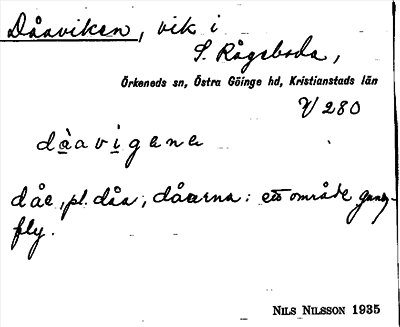 Dåaviken, vik i
S. Rågeboda,
Örkeneds sn, Östra Göinge hd, Kristianstads län
V 280
dàavigana
dåe, pl. dåa, dåarna: ett område gung-
fly.
NILS NILSSON 1935